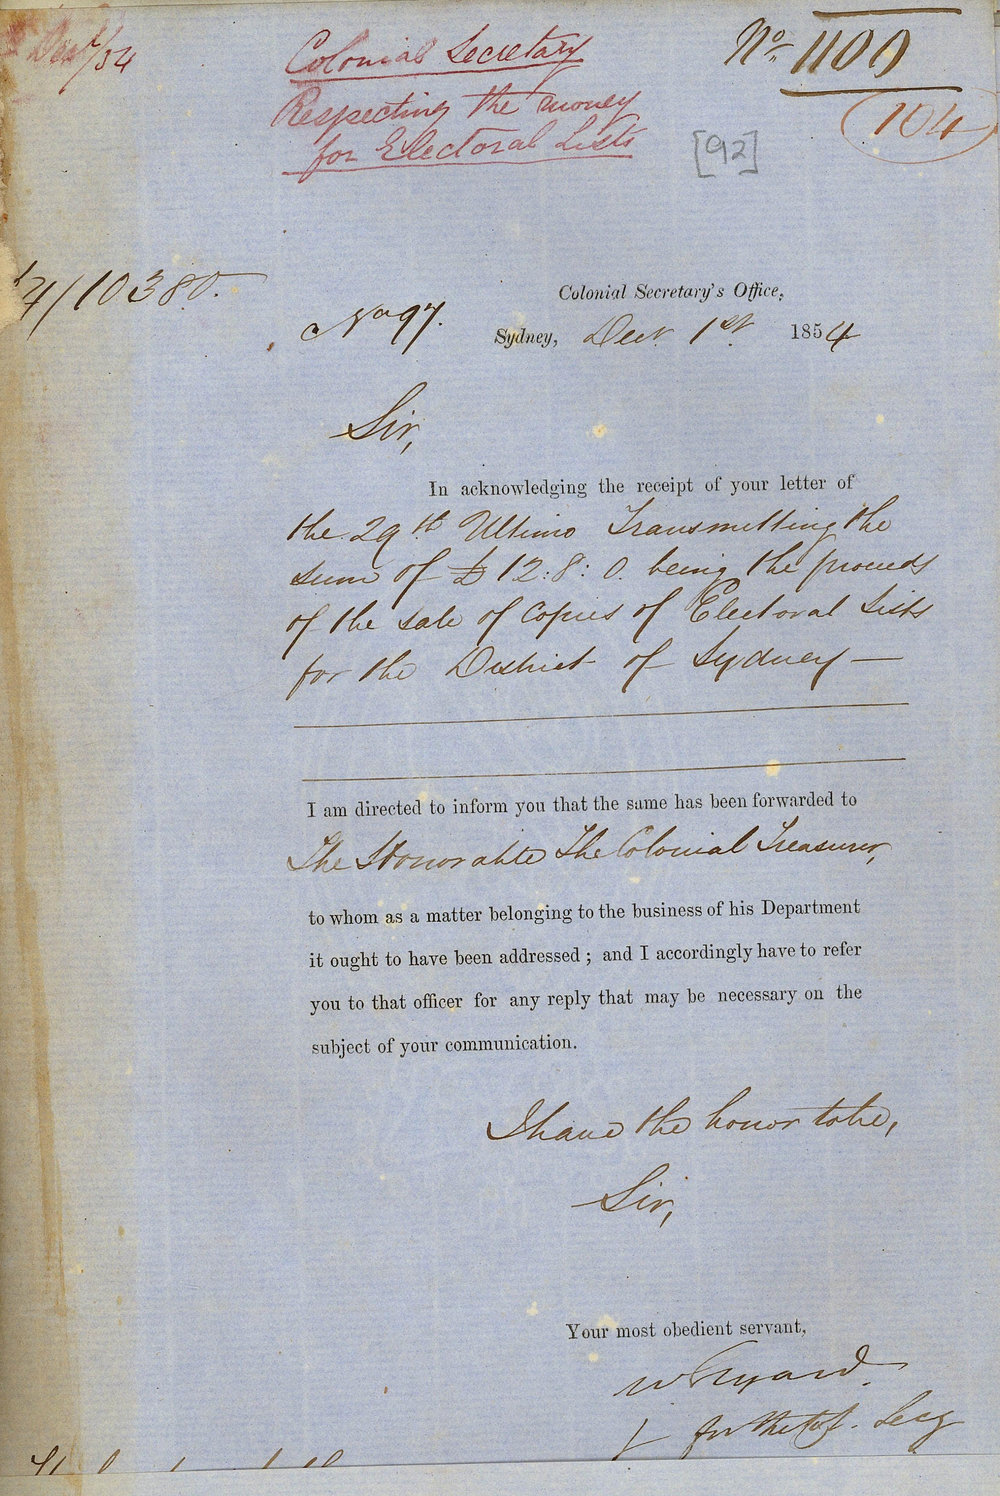 Decr 1/54
Colonial Secretary
Respecting the money
for Electoral Lists
No. 1100
104
[92]
54/10380.
No 97.
Colonial Secretary's Office,
Sydney, Decr. 1st. 1854
Sir,
In acknowledging the receipt of your letter of
the 29th Ultimo Transmitting the
sum of £12:8:0. being the proceeds
of the sale of Copies of Electoral Lists
for the District of Sydney —
I am directed to inform you that the same has been forwarded to
The Honorable The Colonial Treasurer,
to whom as a matter belonging to the business of his Department
it ought to have been addressed ; and I accordingly have to refer
you to that officer for any reply that may be necessary on the
subject of your communication.
I have the honor to be,
Sir,
Your most obedient servant,
for the Col. Secy